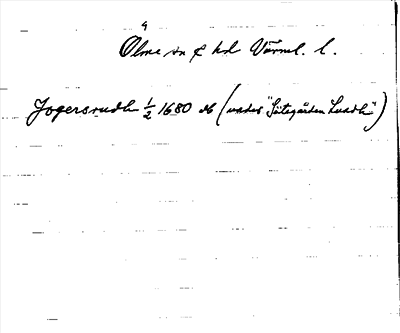 9
Ölme sn f hd Värml. l.
Jogersrudh 1/2 1680 Jb (under "Sätegården Lundh")